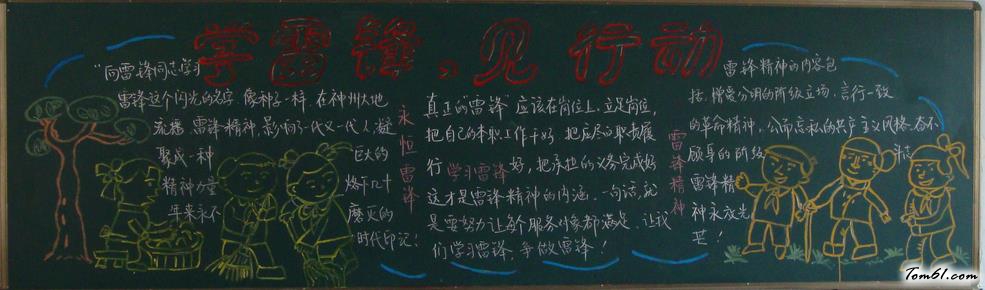 学雷锋、见行动
"向雷锋同志学习
雷锋这个闪光的名字,像种子一样,在神州大地
流播.雷锋精神,影响了一代又一代人,凝
聚成一种 巨大的
精神力量 烙下几十
年来永不 磨灭的
时代印记!
永恒雷锋
真正的"雷锋"应该在岗位上,立足岗位,
把自己的本职工作干好 把应尽的职责履
行 学习雷锋 好,把承担的义务完成好
这才是雷锋精神的内涵.一句话,就
是要努力让每个服务对象都满足.让我
们学习雷锋.争做雷锋!
雷锋精神
雷锋精神的内容包
括,憎爱分明的阶级立场,言行一致
的革命精神,公而忘私的共产主义风格,奋不
顾身的阶级
雷锋精
神永放光
芒!
Tom61.com